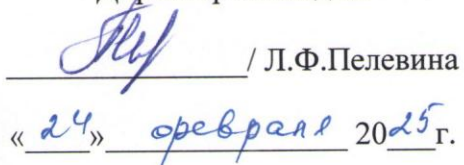 / Л.Ф.Пелевина
« 24 » февраля 2025 г.